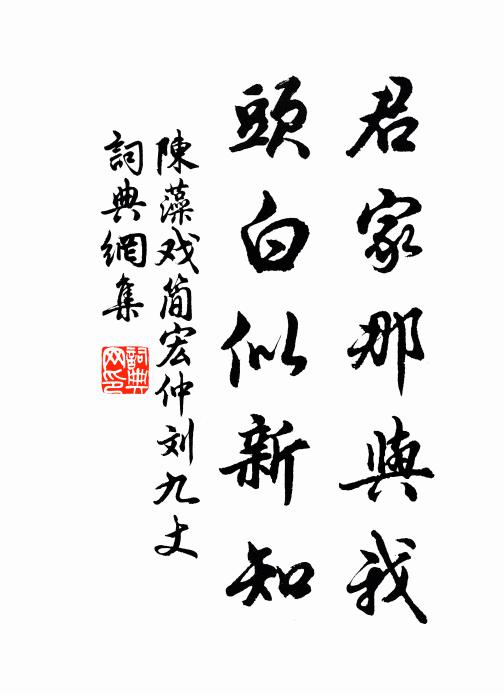 君家那與我
頭白似新知
陳藻戏简宏仲刘九丈
詞典網集
詞典网印